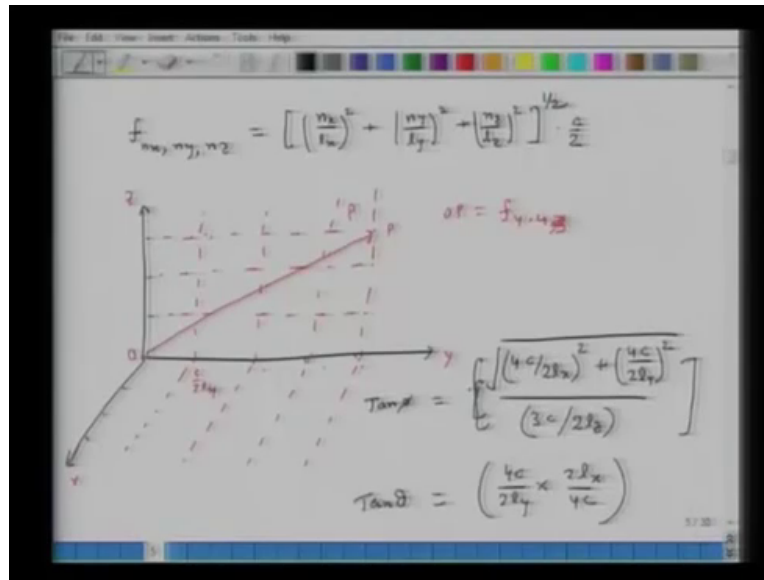 File Edit View Insert Actions Tools Help
f_{nx, ny, nz} = [(nx/lx)² + (ny/ly)² + (nz/lz)²]^{1/2} · c/2
z
P
P
OP = f_{4,4,3}
O
y
c/2ly
x
Tanφ = [√((4c/2lx)² + (4c/2ly)²) / (3c/2lz)]
Tanθ = (4c/2ly × 2lx/4c)